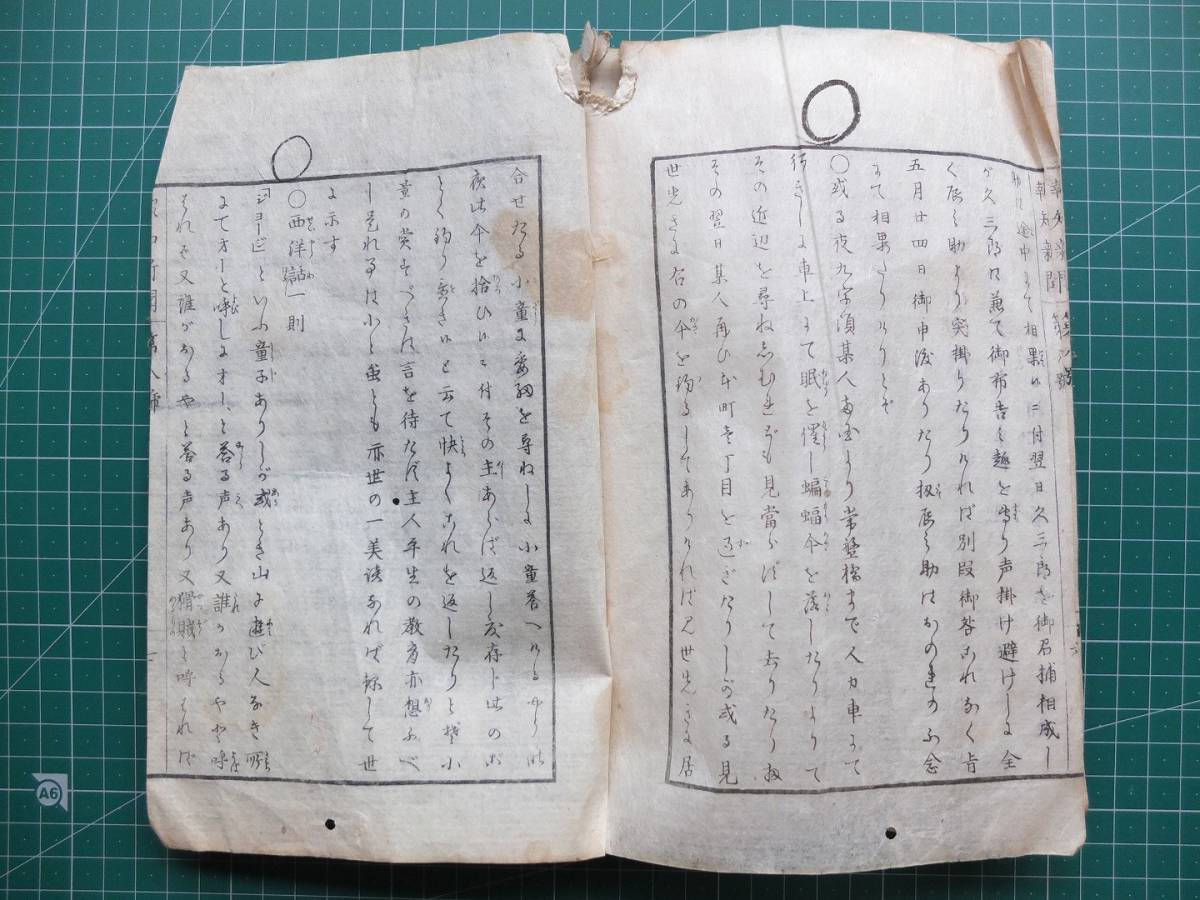 報知新聞 第八号
途中にて相果候ニ付翌日久三郎を御召捕相成し
が久三郎ハ兼て御布告之趣を守り声掛け避けしに全
く辰之助より突掛りたりけれバ別段御咎これなく
五月廿四日御申渡ありたり扨辰之助はおのれの不念
にて相果たりけりとぞ
○或る夜九字頃某人両国より常盤橋まで人力車にて
行きしに車上にて眠を催し蝙蝠傘を落したりよりて
その近辺を尋ね見當らずして去りたり扨
その翌日某人再ひ本町壱丁目を過ぎたりしが或る見
世先に右の傘を釣るしてありければ見世先に居
合せたる小童に委細を尋ねしに小童答へけるやう昨
夜此傘を拾ひ候ニ付その主あらば返し度存じ此の如
とく釣り置き候と云て快よくこれを返したりと
童の賞すべきは言を待たず主人平生の教育亦想ふべ
し是れ小と雖とも亦世の一美談なれば録して世
に示す
○西洋話一則
ジョービといふ童子ありしが或とき山に遊び人なき所
にてオーと呼しにオーと答る声あり又誰かおるやと呼
それに又誰がおるやと答る声あり又猾賊と呼けれバ
第八号
A6